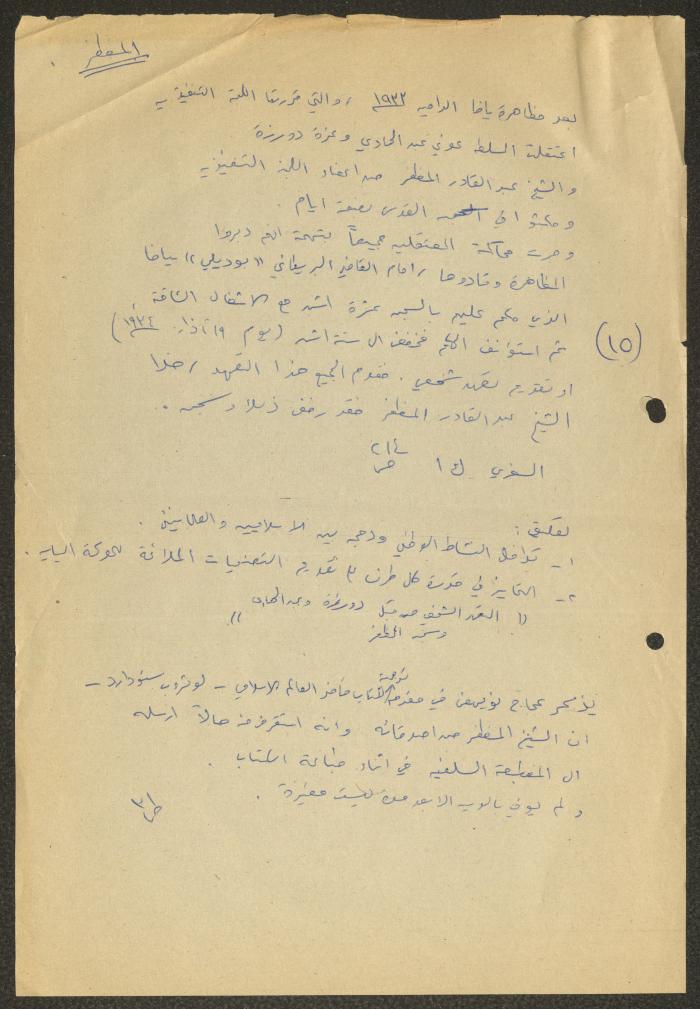 المظفر
بعد مظاهرة يافا الدامية ١٩٣٣، والتي قررتها اللجنة التنفيذية
اعتقلت السلطة عوني عبد الهادي وعزة دروزة
والشيخ عبد القادر المظفر من اعضاء اللجنة التنفيذية
ومكثوا في القدس بضعة ايام.
وجرت محاكمة المعتقلين جميعاً بتهمة انهم دبروا
المظاهرة وقادوها، امام القاضي البريطاني "بوديلي" بيافا
الذي حكم عليهم بالسجن عشرة اشهر مع الاشغال الشاقة،
(١٥)
ثم استؤنف الحكم فخفض الى ستة اشهر (يوم ١٩ آذار ١٩٣٤)
او تقديم تعهد شخصي. فقدم الجميع هذا التعهد، خلا
الشيخ عبد القادر المظفر فقد رفض ذلك وسجن.
السفري ك ١ ص
تعليق:
١- تداخل النشاط الوطني ودمجه بين الاسلاميين والعلمانيين.
٢- التمايز في قدرة كل طرف على تقديم التضحيات الملائمة للحركة السياسية.
(( التعهد الشخصي من قبل دروزة وعبد الهادي
وسجن المظفر ))
يذكر عجاج نويهض في مقدمة ترجمة لكتاب حاضر العالم الاسلامي - لوثروب ستودارد -
ان الشيخ المظفر من اصدقائه وانه استقرض منه مالاً ارسله
الى المطبعة السلفية في اثناء طباعة الكتاب.
ولم يوفي بالدين الا بعد مدة ليست قصيرة.
ص ٣